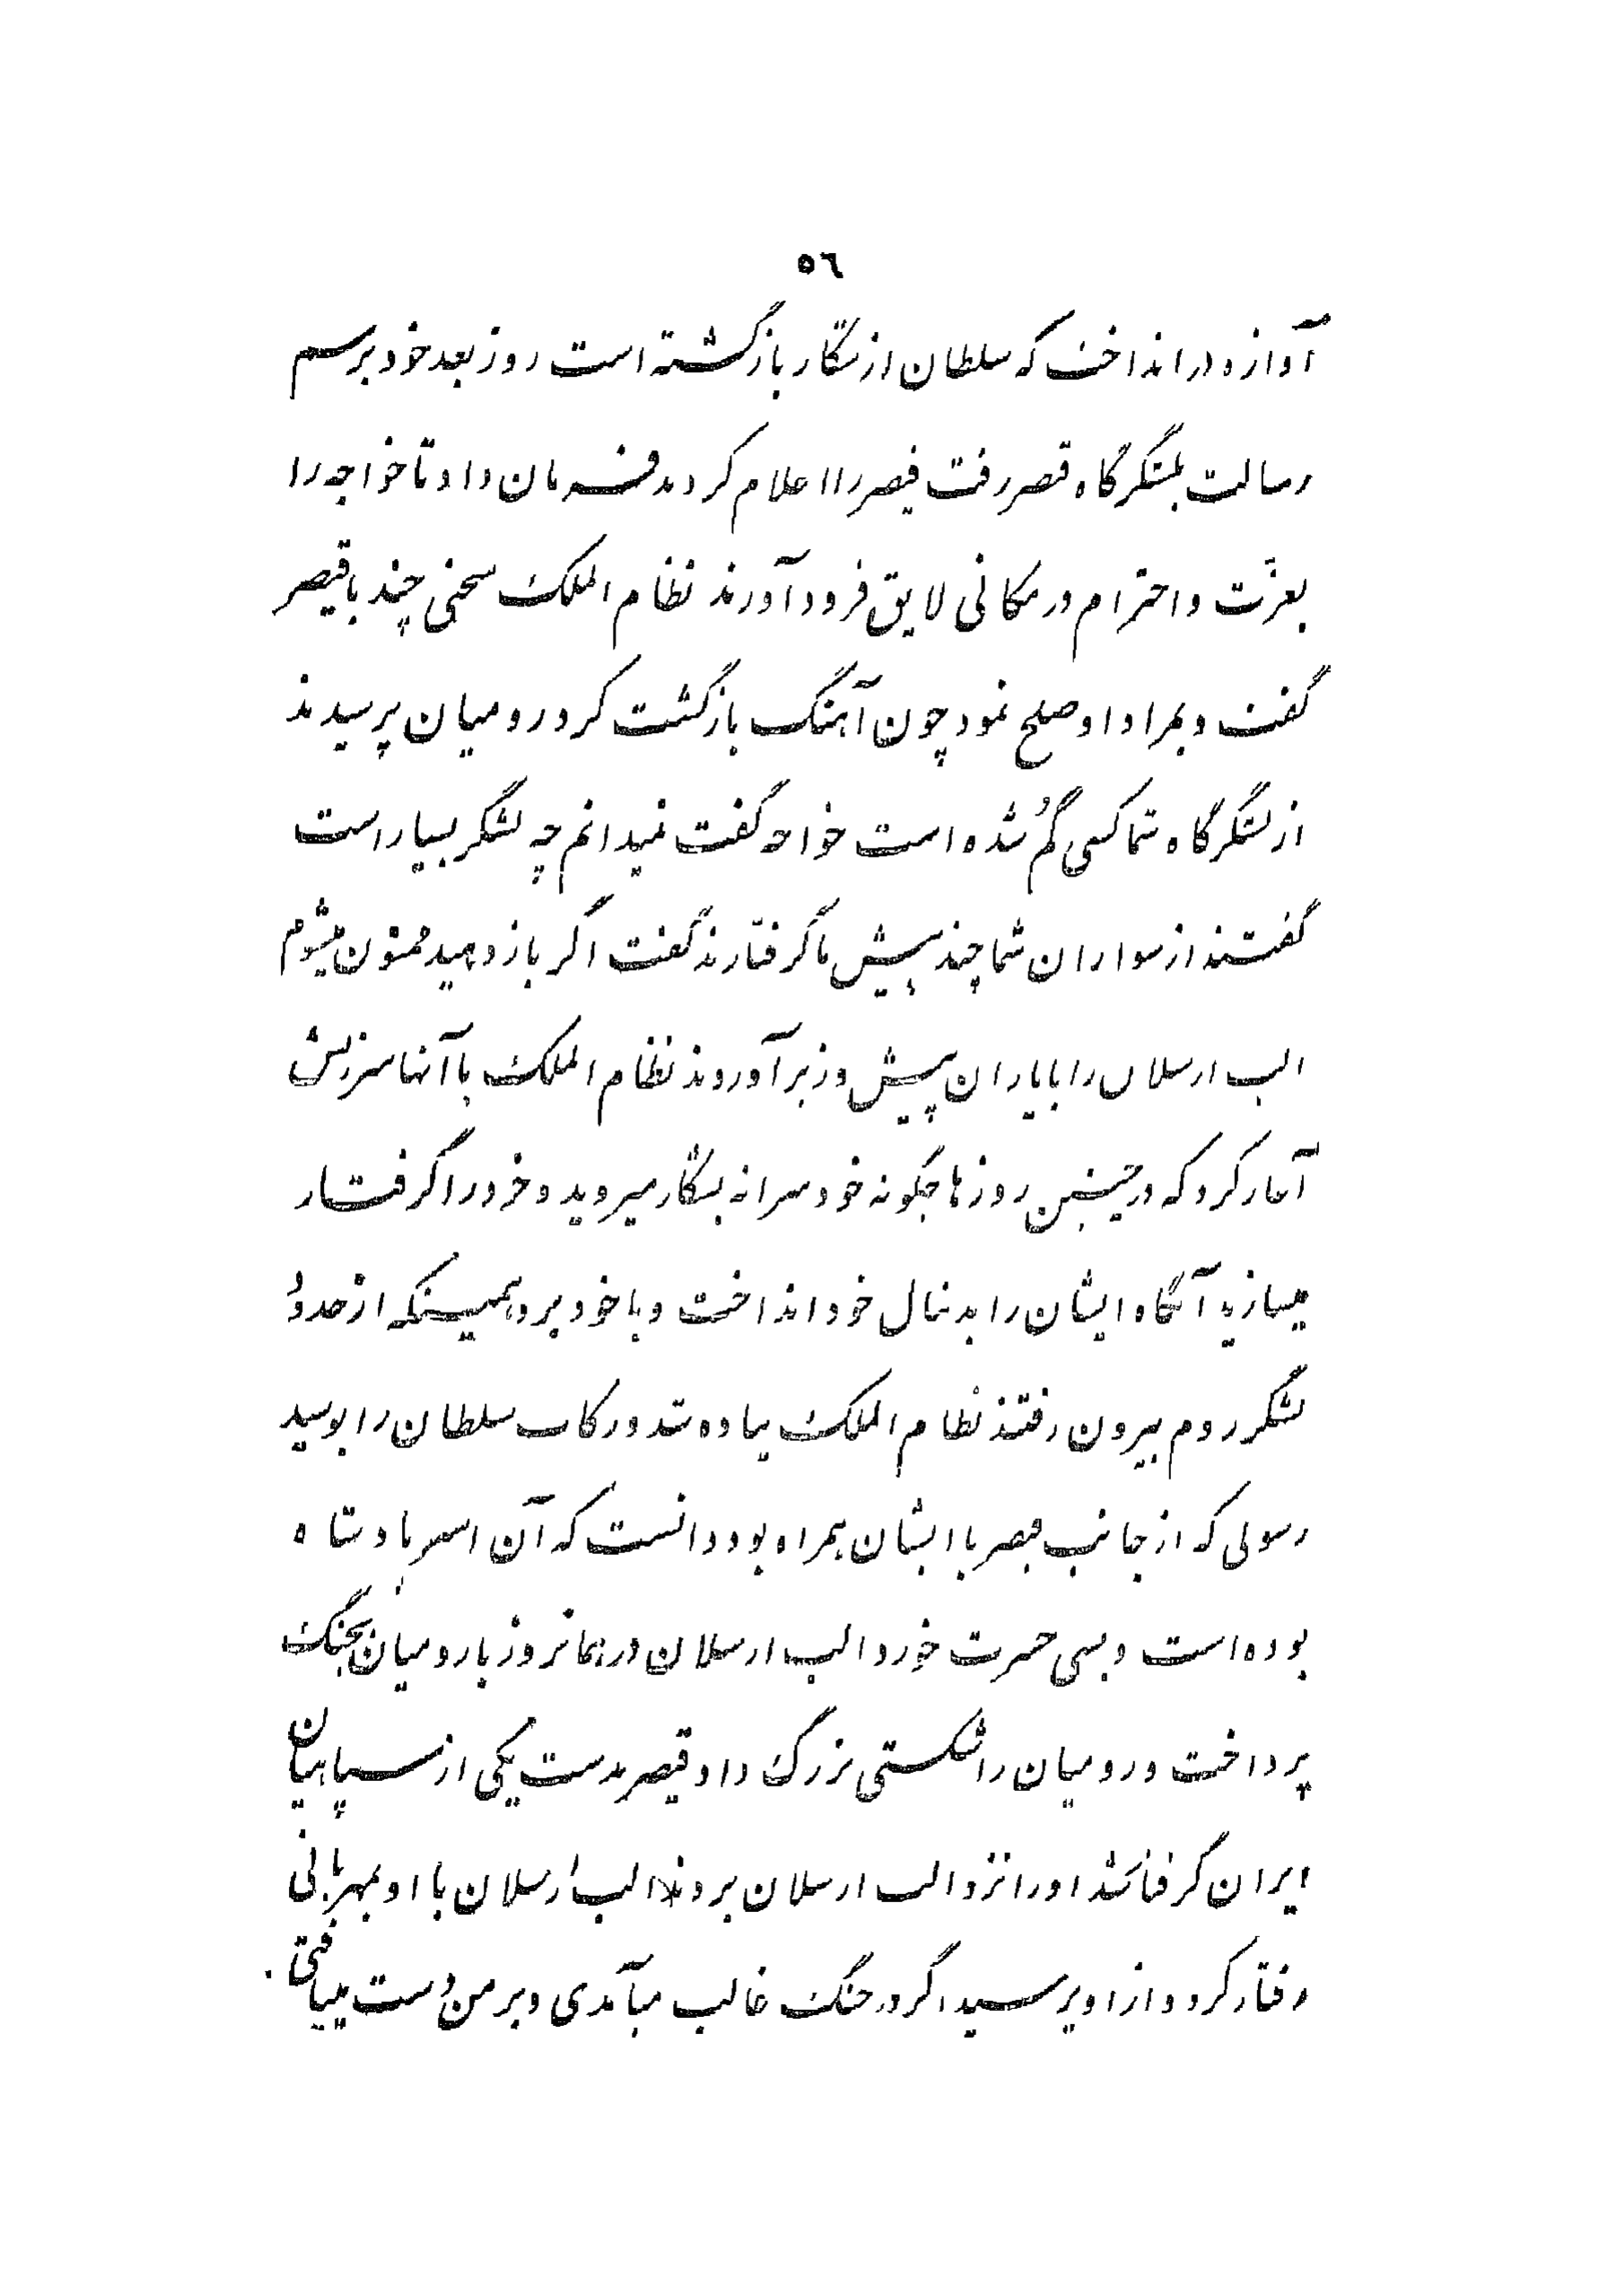 ٥٦
آوازه درانداخت که سلطان از شکار بازگشته است روز بعد خود برسم
رسالت بلشگرگاه قیصر رفت قیصر را اعلام کردند فرمان داد تا خواجه را
بعزّت و احترام در مکانی لایق فرود آورند نظام الملک سخنی چند با قیصر
گفت و بمراد او صلح نمود چون آهنگ بازگشت کرد رومیان پرسیدند
از لشگرگاه شما کسی گُم شده است خواجه گفت نمیدانم چه لشگر بسیار است
گفتند از سواران شما چند پیش ما گرفتارند گفت اگر باز دهید ممنون میشوم
الب ارسلان را با یاران پیش وزیر آوردند نظام الملک با آنها سرزنش
آغاز کرد که در چنین روزها چگونه خودسرانه بشکار میروید و خود را گرفتار
میسازید آنگاه ایشان را بدنبال خود انداخت و با خود برد همینکه از حدود
لشگر روم بیرون رفتند نظام الملک پیاده شد و رکاب سلطان را بوسید
رسولی که از جانب قیصر با ایشان همراه بود دانست که آن اسیر پادشاه
بوده است و بسی حسرت خورد الب ارسلان در همانروز با رومیان بجنگ
پرداخت و رومیان را شکستی بزرگ داد و قیصر بدست یکی از سپاهیان
ایران گرفتار شد او را نزد الب ارسلان بردند الب ارسلان با او بمهربانی
رفتار کرد و از او پرسید اگر در جنگ غالب میآمدی و بر من دست مییافتی